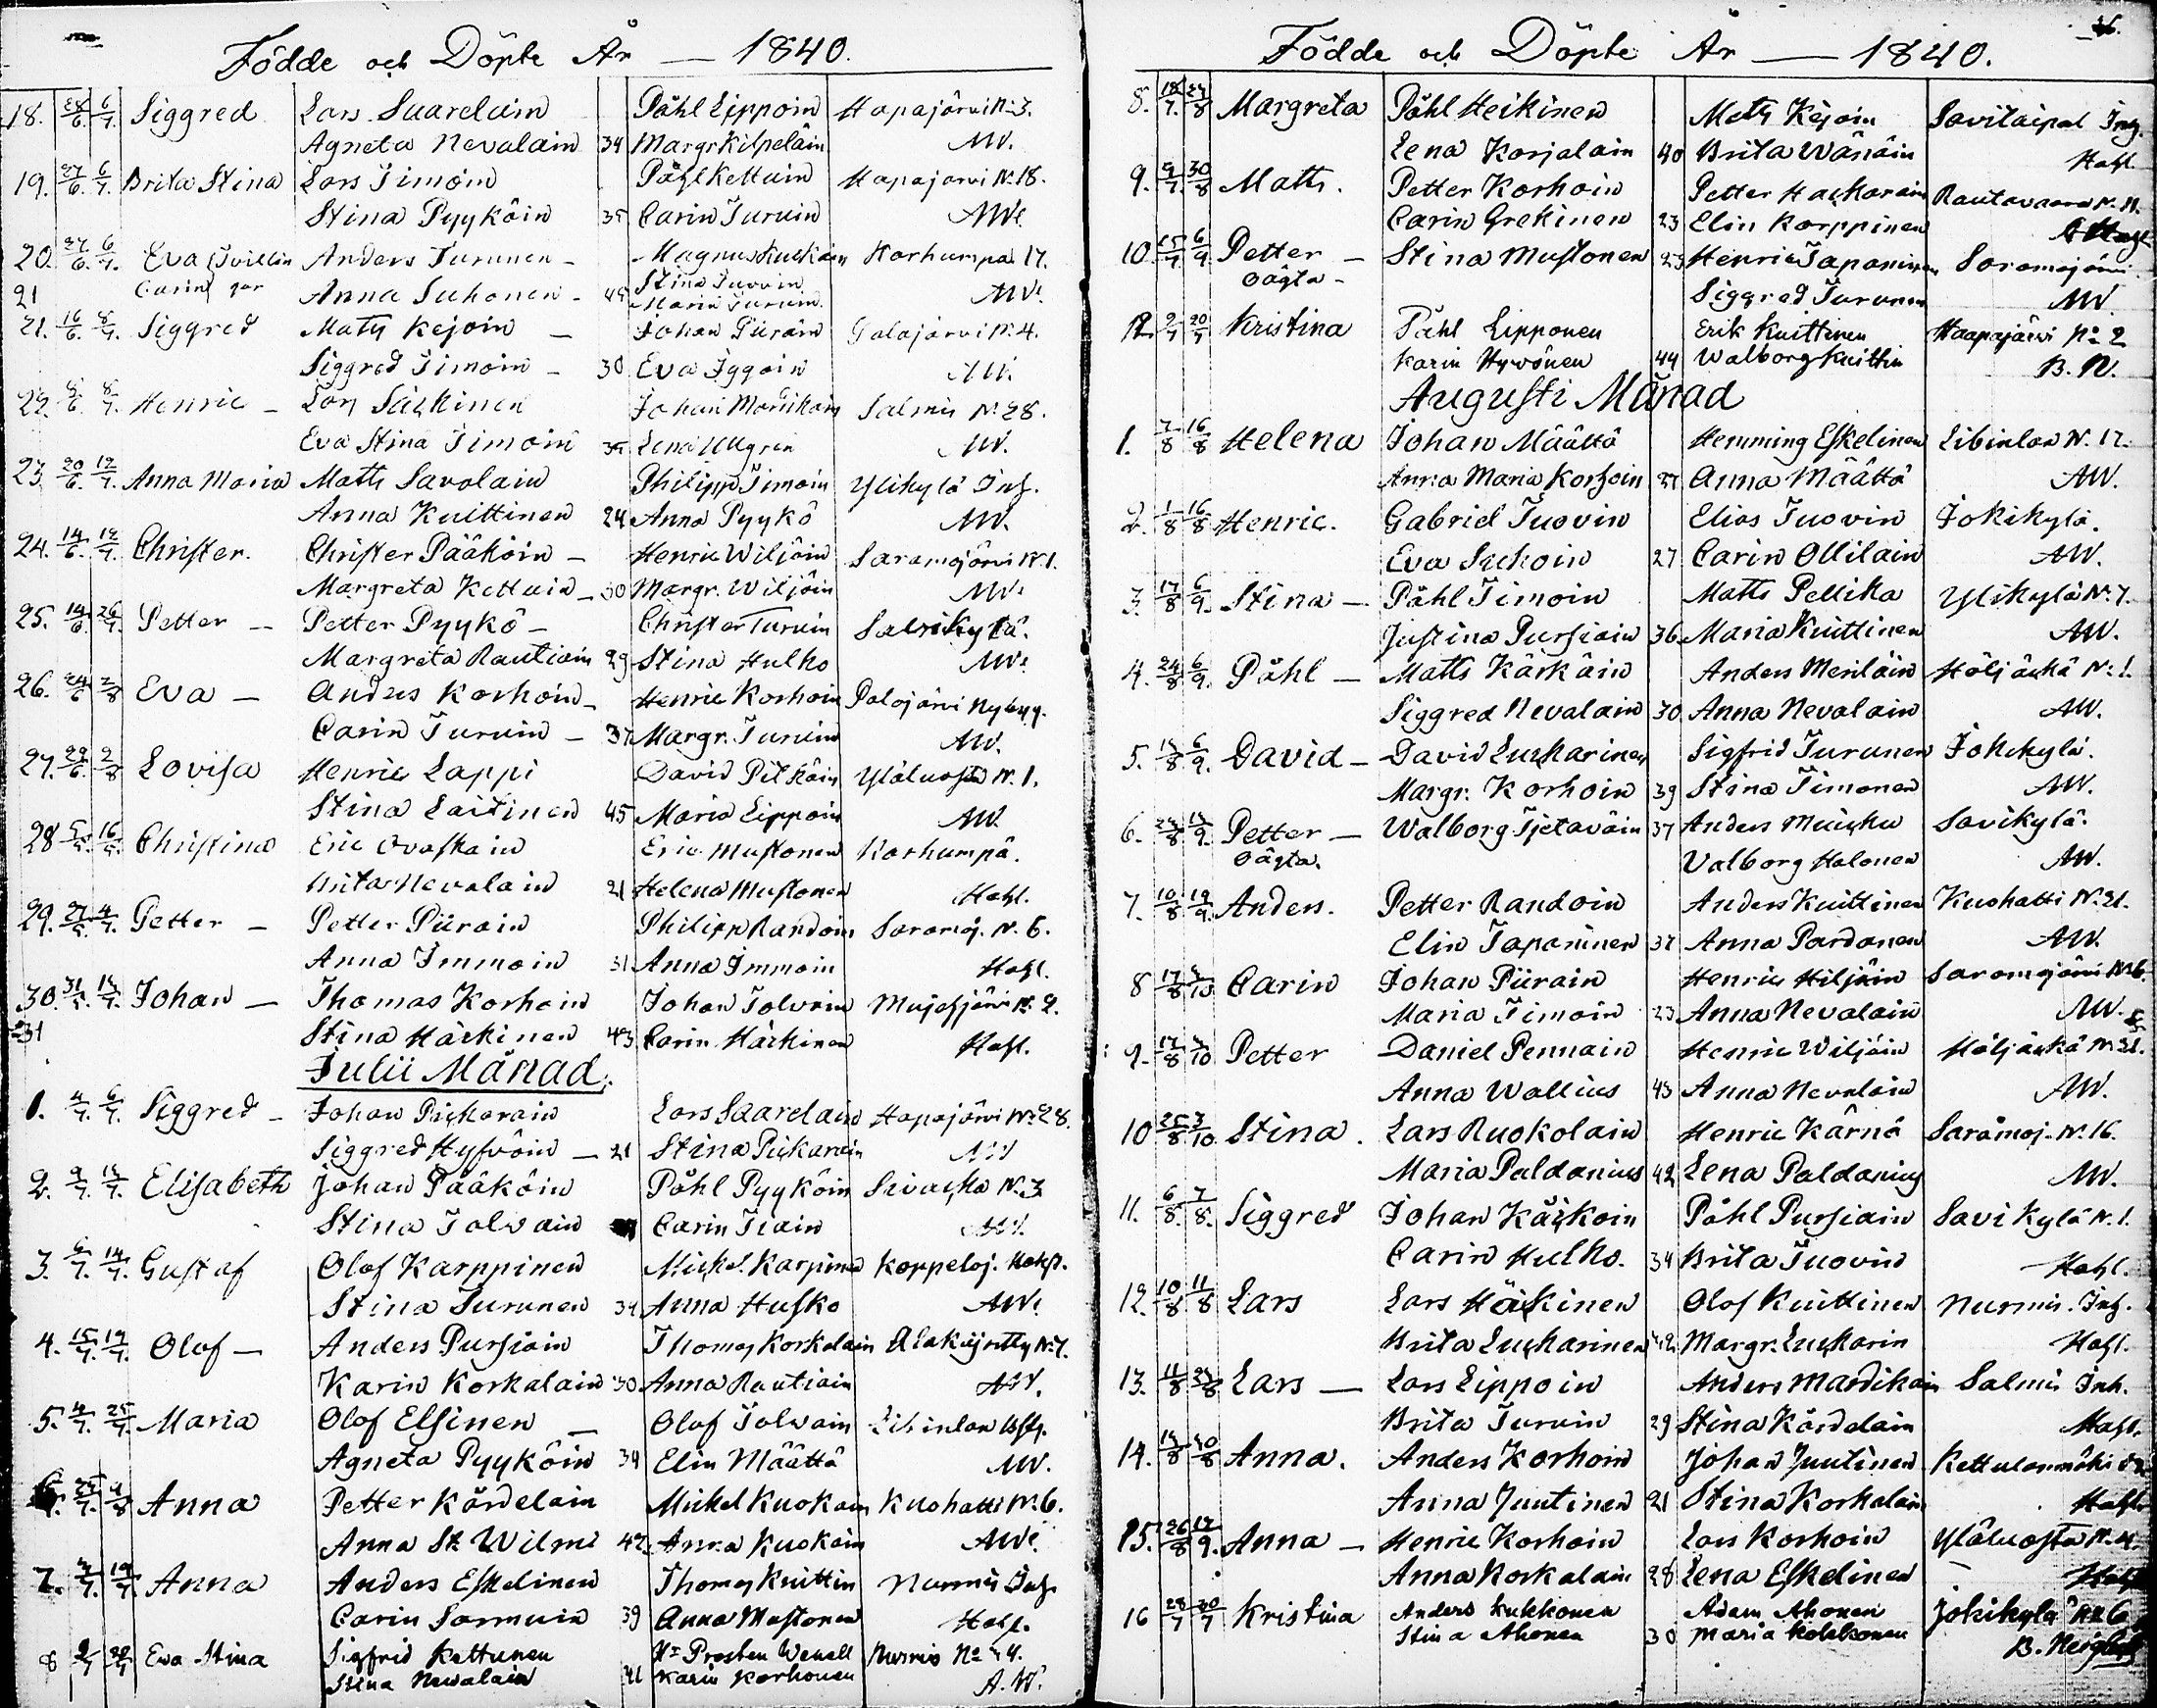 Födde och Döpte År — 1840.
18. 28/6. 6/7. Siggred Lars Suarelain Påhl Lippoin Hapajärvi N:3.
Agneta Nevalain 34 Margr Kilpeläin AW.
19. 27/6. 6/7. Brita Stina Lars Timoin Påhl Kettuin Hapajarvi N:18.
Stina Pyyköin 35 Carin Turuin AW.
20. 27/6. 6/7. Eva Tvillin Anders Turunen - Magnus Kuckain Korhumpä 17.
21 Carin gar Anna Suhonen - 45 Stina Tuovin AW.
Maria Turuin
21. 16/6. 8/7. Siggred Matts Kejoin — Johan Piirain Palajärvi N:4.
Siggred Timoin - 30 Eva Iggoin AW.
22. 8/6. 8/7. Henric - Lars Säckinen Johan Mardikain Salmis N:28.
Eva Stina Timoin 35 Lena Ullgren AW.
23. 20/6. 12/7. Anna Maria Matts Savolain Philipp Timoin Ylikylä Inh.
Anna Kuittinen 24 Anna Pyykö AW.
24. 14/6. 12/7. Christer. Christer Pääköin - Henric Wiljöin Saramojärvi N:1.
Margreta Kettuin - 30 Margr. Wiljöin AW.
25. 14/6. 26/7. Petter — Petter Pyykö - Christer Turuin Salmikylä.
Margreta Rautiain 29 Stina Hulko AW.
26. 24/6 2/8 Eva — Anders Korhoin - Henric Korhoin Palojärvi Nybygg.
Carin Turuin - 37 Margr. Turuin AW.
27. 29/6. 2/8 Lovisa Henric Lappi David Pitkäin Yläluosta N:1.
Stina Laitinen 45 Maria Lippoin AW.
28 16/5. Christina Eric Ovaskain Eric Mustonen Korhumpä.
Brita Nevalain 21 Helena Mustonen Hahl.
29. 27/5. 4/7. Petter — Petter Piirain Philipp Randoin Saramoj. N:6.
Anna Immoin 31 Anna Immoin Hahl.
30. 31/5. 14/7. Johan — Thomas Korhoin Johan Tolvain Mujejjärvi N:2.
31 Stina Häikinen 43 Carin Häikinen Hahl.
Julii Månad.
1. 4/7. 6/7. Siggred - Johan Pickarain Lars Saarelain Hapajärvi N:28.
Siggred Hyfvöin — 21 Stina Pickarain AW
2. 9/7. 14/7. Elisabeth Johan Pääköin Påhl Pyyköin Sivacka N:3
Stina Tolvain Carin Tiain AW.
3. 6/7. 14/7. Gustaf Olof Karppinen Mickel Karpinen Koppeloj.
Stina Turunen 34 Anna Husko AW.
4. 15/7. 19/7. Olof — Anders Pursiain Thomas Korkalain Alakujrtty N:7.
Karin Korkalain 30 Anna Rautiain AW.
5. 4/7. 25/7. Maria Olof Elsinen — Olof Tolvain Libinlax
Agneta Pyyköin 34 Elin Määttä AW.
6. 25/7. 4/8 Anna Petter Kärdelain Mickel Kuokain Kuohatti N:6.
Anna St. Wilmi 42 Anna Kuokain AW.
7. 4/7. 19/7. Anna Anders Eskelinen Thomas Kuittin Nurmis Inh.
Carin Sormuin 39 Anna Mustonen Hahl.
8 2/7 29/7 Ewa Stina Sigfrid Kettunen Hr Prosten Wenell Nurmis No 44.
Stina Newalain 41 Karin Korhonen A.W.
Födde och Döpte År — 1840.
8. 18/7. 23/8 Margreta Påhl Heikinen Matts Kejoin Savitaipal Inh.
Lena Korjalain 40 Brita Wänäin Hahl.
9. 9/7. 30/8 Matts. Petter Korhoin Petter Hackarain Rautavaara N:11.
Carin Grekinen 23 Elin Korppinen
10. 15/7. 6/9. Petter — Stina Mustonen 23 Henric Tapaninen Saramojärvi
oägta - Siggred Turunen AW.
12. 2/7 20/7 Kristina Påhl Lipponen Erik Kuittinen Haapajärvi No 2
Karin Hyvönen 44 Walborg Kuittin B. N.
Augusti Månad
1. 7/8 16/8 Helena Johan Määttä Hemming Eskelinen Libinlax N:17.
Anna Maria Korhoin 27 Anna Määttä AW.
2. 1/8 16/8 Henric. Gabriel Tuovin Elias Tuovin Jokikylä.
Eva Suhoin 27 Carin Ollilain AW.
3. 17/8 6/9. Stina — Påhl Timoin Matts Pellika Ylikylä N:7.
Justina Pursiain 36 Maria Kuittinen AW.
4. 24/8 6/9. Påhl — Matts Kärkäin Anders Meriläin Höljäckä N:1.
Siggred Nevalain 30 Anna Nevalain AW.
5. 15/8 6/9. David — David Luckarinen Sigfrid Turunen Jokikylä.
Margr. Korhoin 39 Stina Timonen AW.
6. 24/8 13/9. Petter — Walborg Tjetaväin 37 Anders Muicku Savikylä.
oägta. Valborg Halonen AW.
7. 10/8 19/9. Anders. Petter Randoin Anders Kuittinen Kuohatti N:21.
Elin Tapaninen 37 Anna Pardanen AW.
8 17/8 4/10 Carin Johan Piirain Henric Hiljain Saramojärvi N:6.
Maria Timoin 23 Anna Nevalain AW.
9. 17/8 4/10 Petter Daniel Pennain Henric Wiljäin Höljäckä N:31.
Anna Wallius 43 Anna Nevalain AW.
10 25/8. 3/10 Stina. Lars Ruokolain Henric Kärnä Saramoj. N:16.
Maria Paldanius 42 Lena Paldanius AW.
11. 6/8. 7/8. Siggred Johan Käickoin Påhl Pursiain Savikylä N:1.
Carin Hulko. 34 Brita Tuovin Hahl.
12. 10/8 11/8 Lars Lars Häikinen Olof Kuittinen Nurmis. Inh.
Brita Luckarinen 42 Margr. Luckarin Hahl.
13. 11/8 23/8 Lars — Lars Lippoin Anders Mardikain Salmis Inh.
Brita Turuin 29 Stina Kärdelain Hahl.
14. 14/8 30/8 Anna. Anders Korhoin Johan Juutinen Kettulanmäki
Anna Juutinen 21 Stina Korkalain Hahl.
15. 26/8 12/9. Anna — Henric Korhoin Lars Korhoin Yläluosta N:4.
Anna Korkalain 28 Lena Eskelinen Hahl
16 28/7 30/7 Kristina Anders Kukkonen Adam Ahonen Jokikylä No 6
Stina Ahonen 30 Maria Kokkonen B.